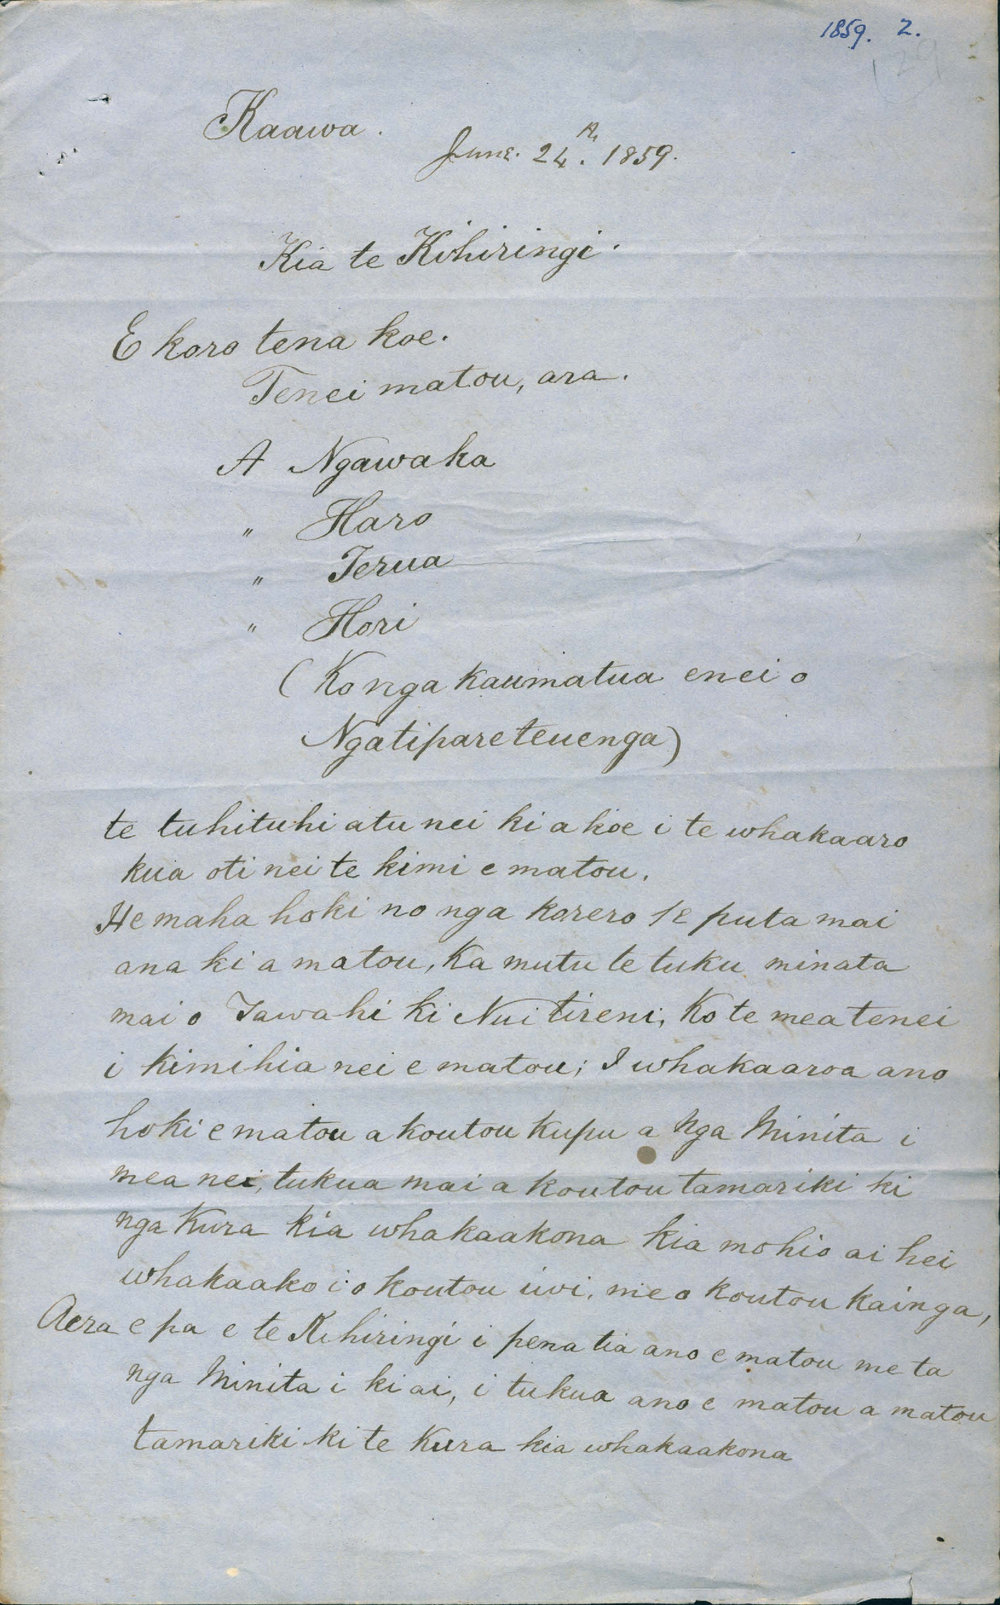 1859. 2.
29
Kaawa.
June. 24th. 1859.
Kia te Kihiringi.
E koro tena koe.
Tenei matou, ara.
A Ngawaka
" Haro
" Terua
" Hori
(Ko nga kaumatua enei o
Ngatipareteuenga)
te tuhituhi atu nei ki a koe i te whakaaro
kua oti nei te kimi e matou.
He maha hoki no nga korero e puta mai
ana ki a matou, Ka mutu te tuku minata
mai o Tawahi ki Nui tireni; Ko te mea tenei
i kimihia nei e matou; I whakaaroa ano
hoki e matou a koutou kupu a nga Minita i
mea nei, tukua mai a koutou tamariki ki
nga Kura kia whakaakona kia mohio ai hei
whakaako i o koutou iwi, me o koutou kainga,
Aera e pa e te Kihiringi i pena tia ano e matou me ta
nga Minita i ki ai, i tukua ano e matou a matou
tamariki ki te Kura kia whakaakona